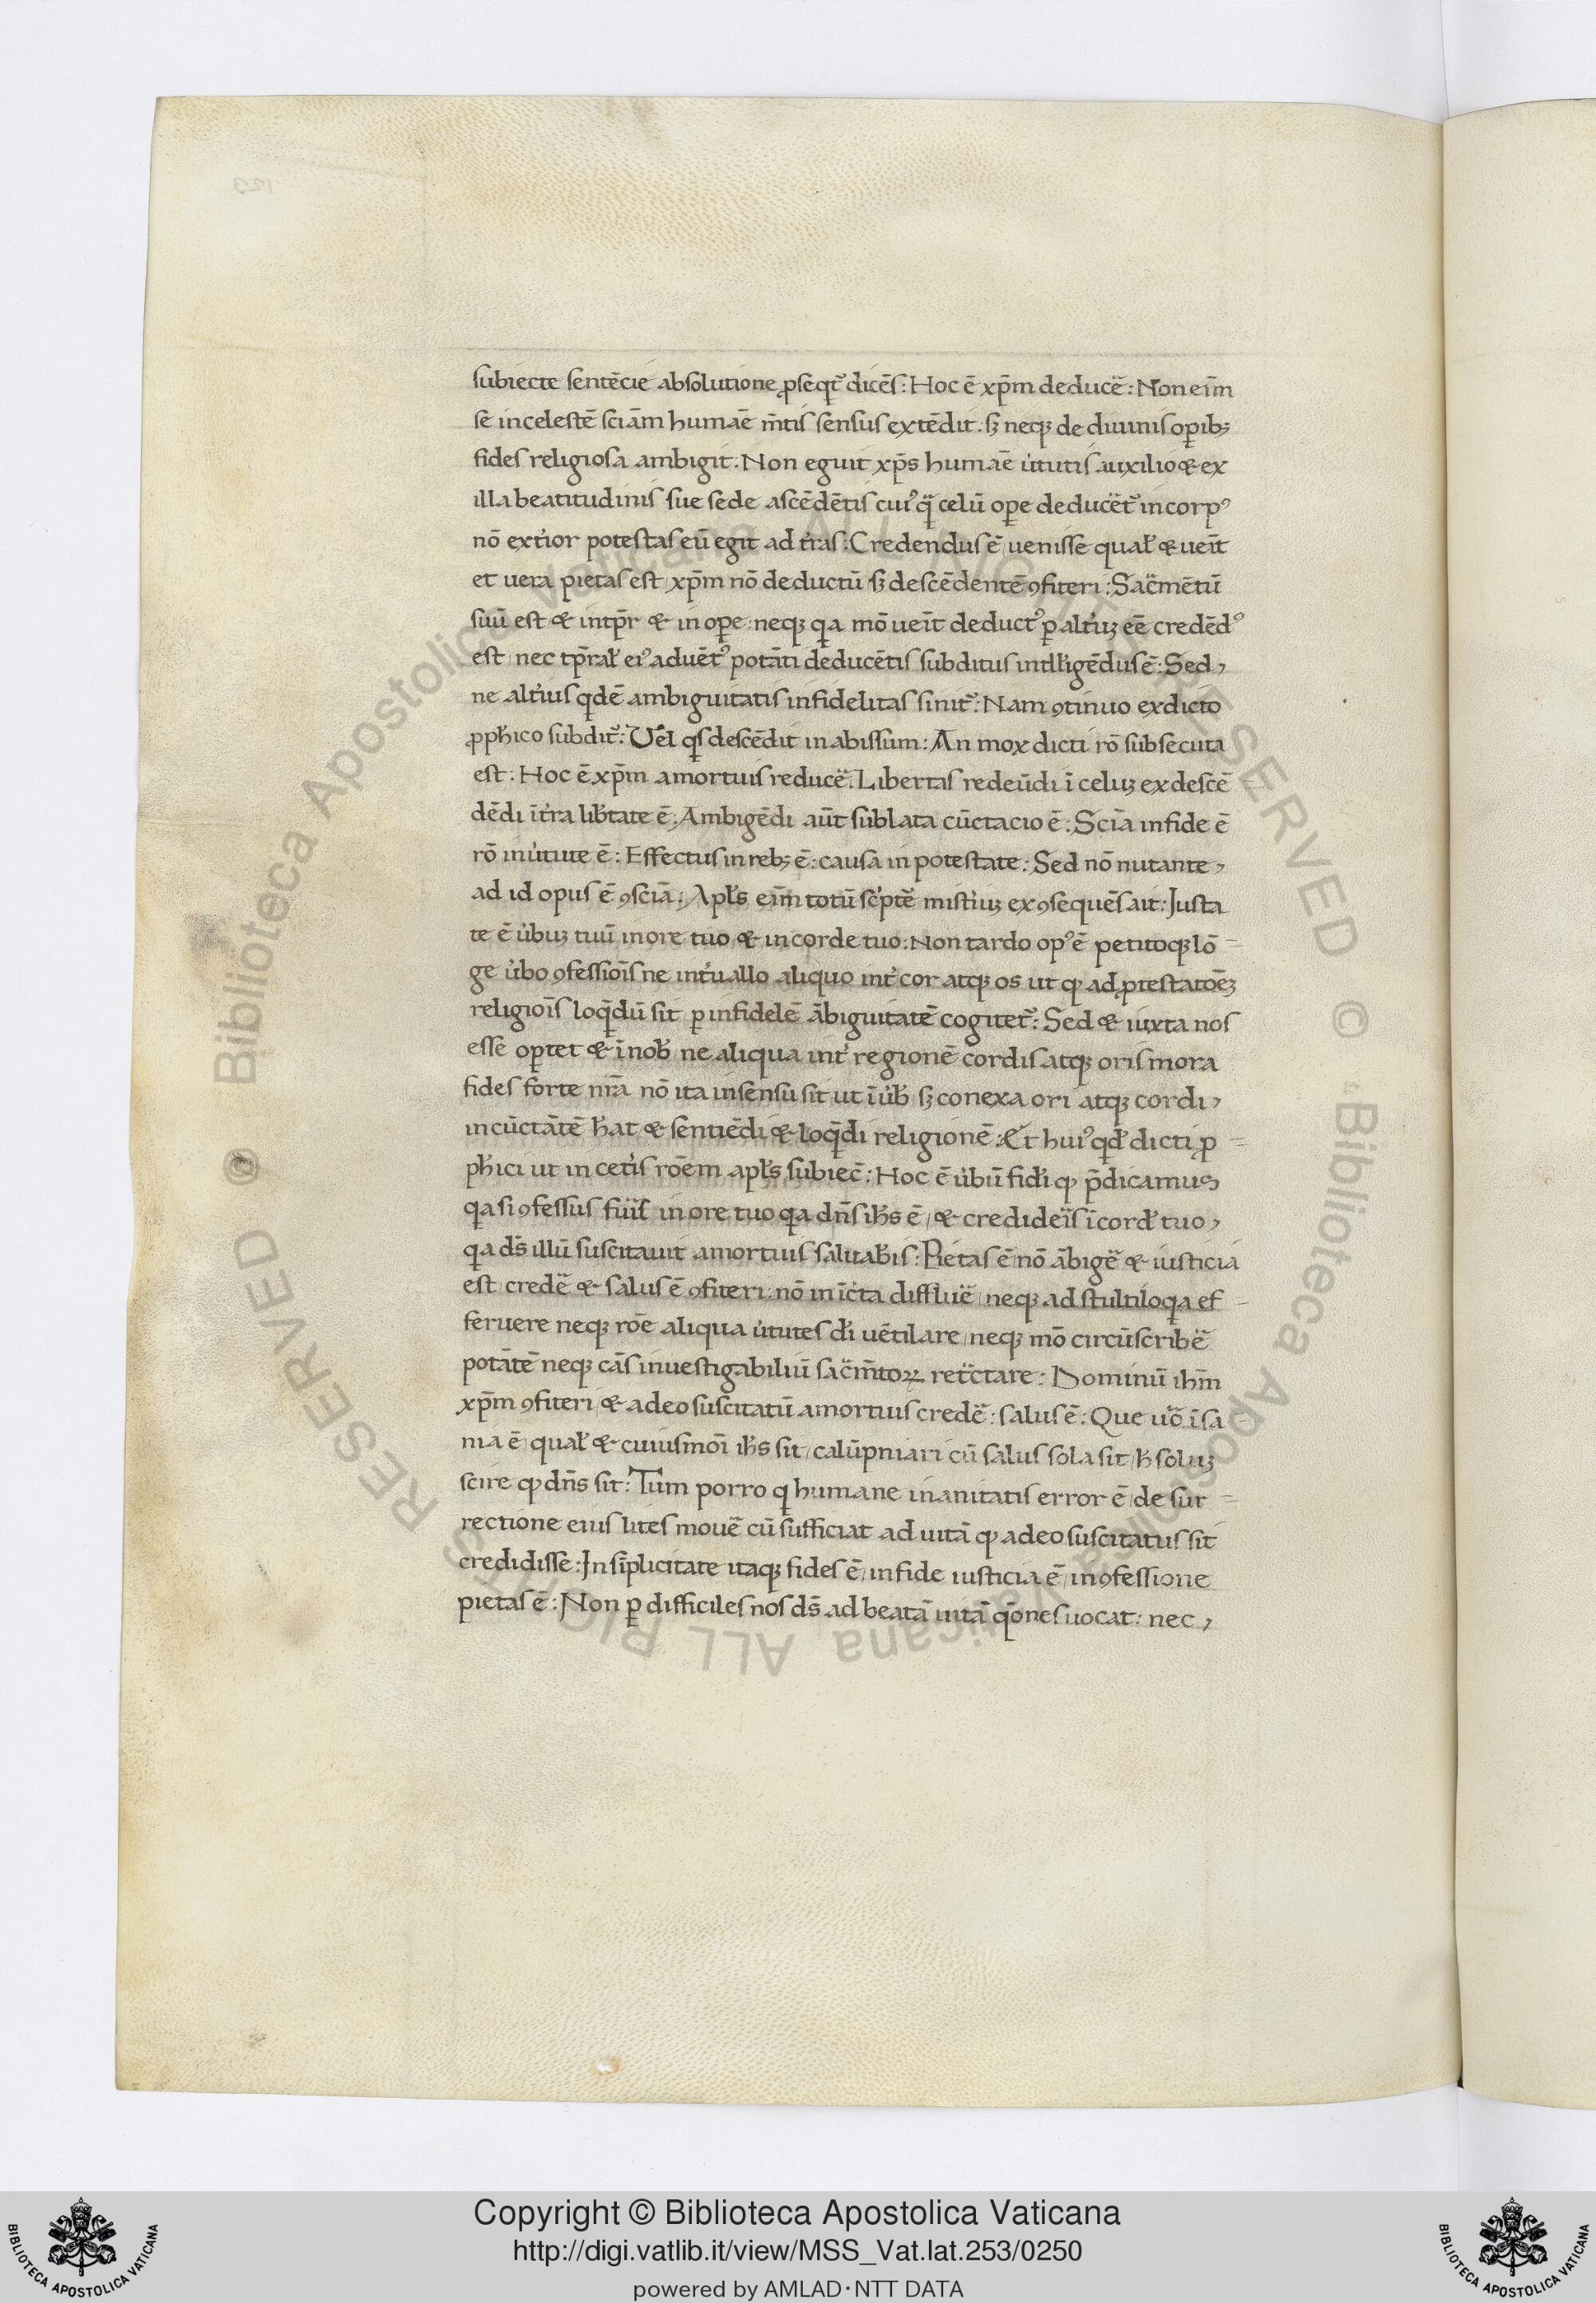 subiecte sentēcie absolutione ꝓseqt᷑ dicēs: Hoc ē xp̄m deducē᷑: Non eīm
se in celestē sciā̄m humāe m̄tis sensus extēdit. sꝫ neqꝫ de diuinis oꝑibꝫ
fides religiosa ambigit. Non eguit xp̄s humāe u̇tutis auxilio & ex
illa beatitudinis sue sede ascēdētis cuiꝰ q̈ celū oꝑe deducēt᷑ in corpꝰ
nō exṫior potestas eū egit ad ṫras: Credendus ē uenisse qual̓ & ueīt
et uera pietas est xp̄m nō deductū sꝫ descēdentē ꝯfiteri: Sac̈mētū
suū est & intp̄r & in oꝑe: neqꝫ qa mō ueīt deductꝰ ꝑ alṫiuꝫ eē credēdꝰ
est nec tp̄ral̓ eiꝰ aduētꝰ potāti deducētis subditus intll̓igēdus ē: Sed,
ne alṫius qdē ambiguitatis infidelitas sinit᷑: Nam ꝯtinuo ex dicto
ꝓph̓ico subdit᷑: Vel qs descēdit in abissum: An mox dicti rō subsecuta
est: Hoc ē xp̄m a mortuis reducē᷑. Libertas redeūdi ī celuꝫ ex descē-
dēdi īṫra lib̓tate ē: Ambigēdi aūt sublata cūctacio ē: Sciā in fide ē
rō in u̇tute ē: Effectus in rebꝫ ē: causa in potestate: Sed nō nutante,
ad id opus ē ꝯsciā: Apl̓s eīm totū sc̓ptē᷑ misṫiuꝫ exꝯsequēs ait: Iuxta
te ē u̇buꝫ tuū in ore tuo & in corde tuo: Non tardo opꝰ ē petitoqꝫ lō=
ge u̇bo ꝯfessiōis ne inṫuallo aliquo inṫ cor atqꝫ os ut qꝫ ad ꝓtestatōeꝫ
religiōis loqdū sit ꝑ infidelē ābiguitatē cogitet᷑: Sed & iuxta nos
esse oꝑtet & ī nob̓ ne aliqua inṫ regionē cordis atqꝫ oris mora
fides forte nr̄a nō ita in sensu sit ut ī u̇b̓ sꝫ conexa ori atqꝫ cordi,
incūctātē h̓at & sentiēdi & loqdi religionē: Et huiꝰ qd̓ dicti ꝓ=
ph̓ici ut in ceṫis rōem apl̓s subiec̄: Hoc ē u̇bū fidi̓ qꝫ p̄dicamus
qa si ꝯfessus fuis̈ in ore tuo qa dn̄s ih̓s ē, & credideīs ī cord̓ tuo,
qa ds̄ illū suscitauit a mortuis saluab̓is: Pietas ē nō ābigē᷑ & iusticia
est credē᷑ & salus ē ꝯfiteri: nō in īc̓ta diffluē᷑ neqꝫ ad stultiloqa ef-
feruere neqꝫ rōe aliqua u̇tutes di̓ uētilare neqꝫ mō circūscribē᷑
potātē neqꝫ cās inuestigabiliū sac̈m̄toꝝ reẗctare: Dominū ih̄m
xp̄m ꝯfiteri & a deo suscitatū a mortuis credē᷑: salus ē: Que uō̓ īsa-
nia ē qual̓ & cuiusmōi ih̓s sit calūpniari cū salus sola sit h̓ soluꝫ
scire qꝫ dn̄s sit: Tum porro q humane inanitatis error ē de sur=
rectione eius lites mouē᷑ cū sufficiat ad uitā qꝫ a deo suscitatus sit
credidisse: In sīplicitate itaqꝫ fides ē, in fide iusticia ē, in ꝯfessione
pietas ē: Non ꝑ difficiles nos ds̄ ad beatā uitā qōnes uocat: nec,
© Biblioteca Apostolica Vaticana ALL RIGHTS RESERVED © Biblioteca Apostolica Vaticana ALL RIGHTS RESERVED
Copyright © Biblioteca Apostolica Vaticana
http://digi.vatlib.it/view/MSS_Vat.lat.253/0250
powered by AMLAD·NTT DATA
BIBLIOTECA APOSTOLICA VATICANA
BIBLIOTECA APOSTOLICA VATICANA